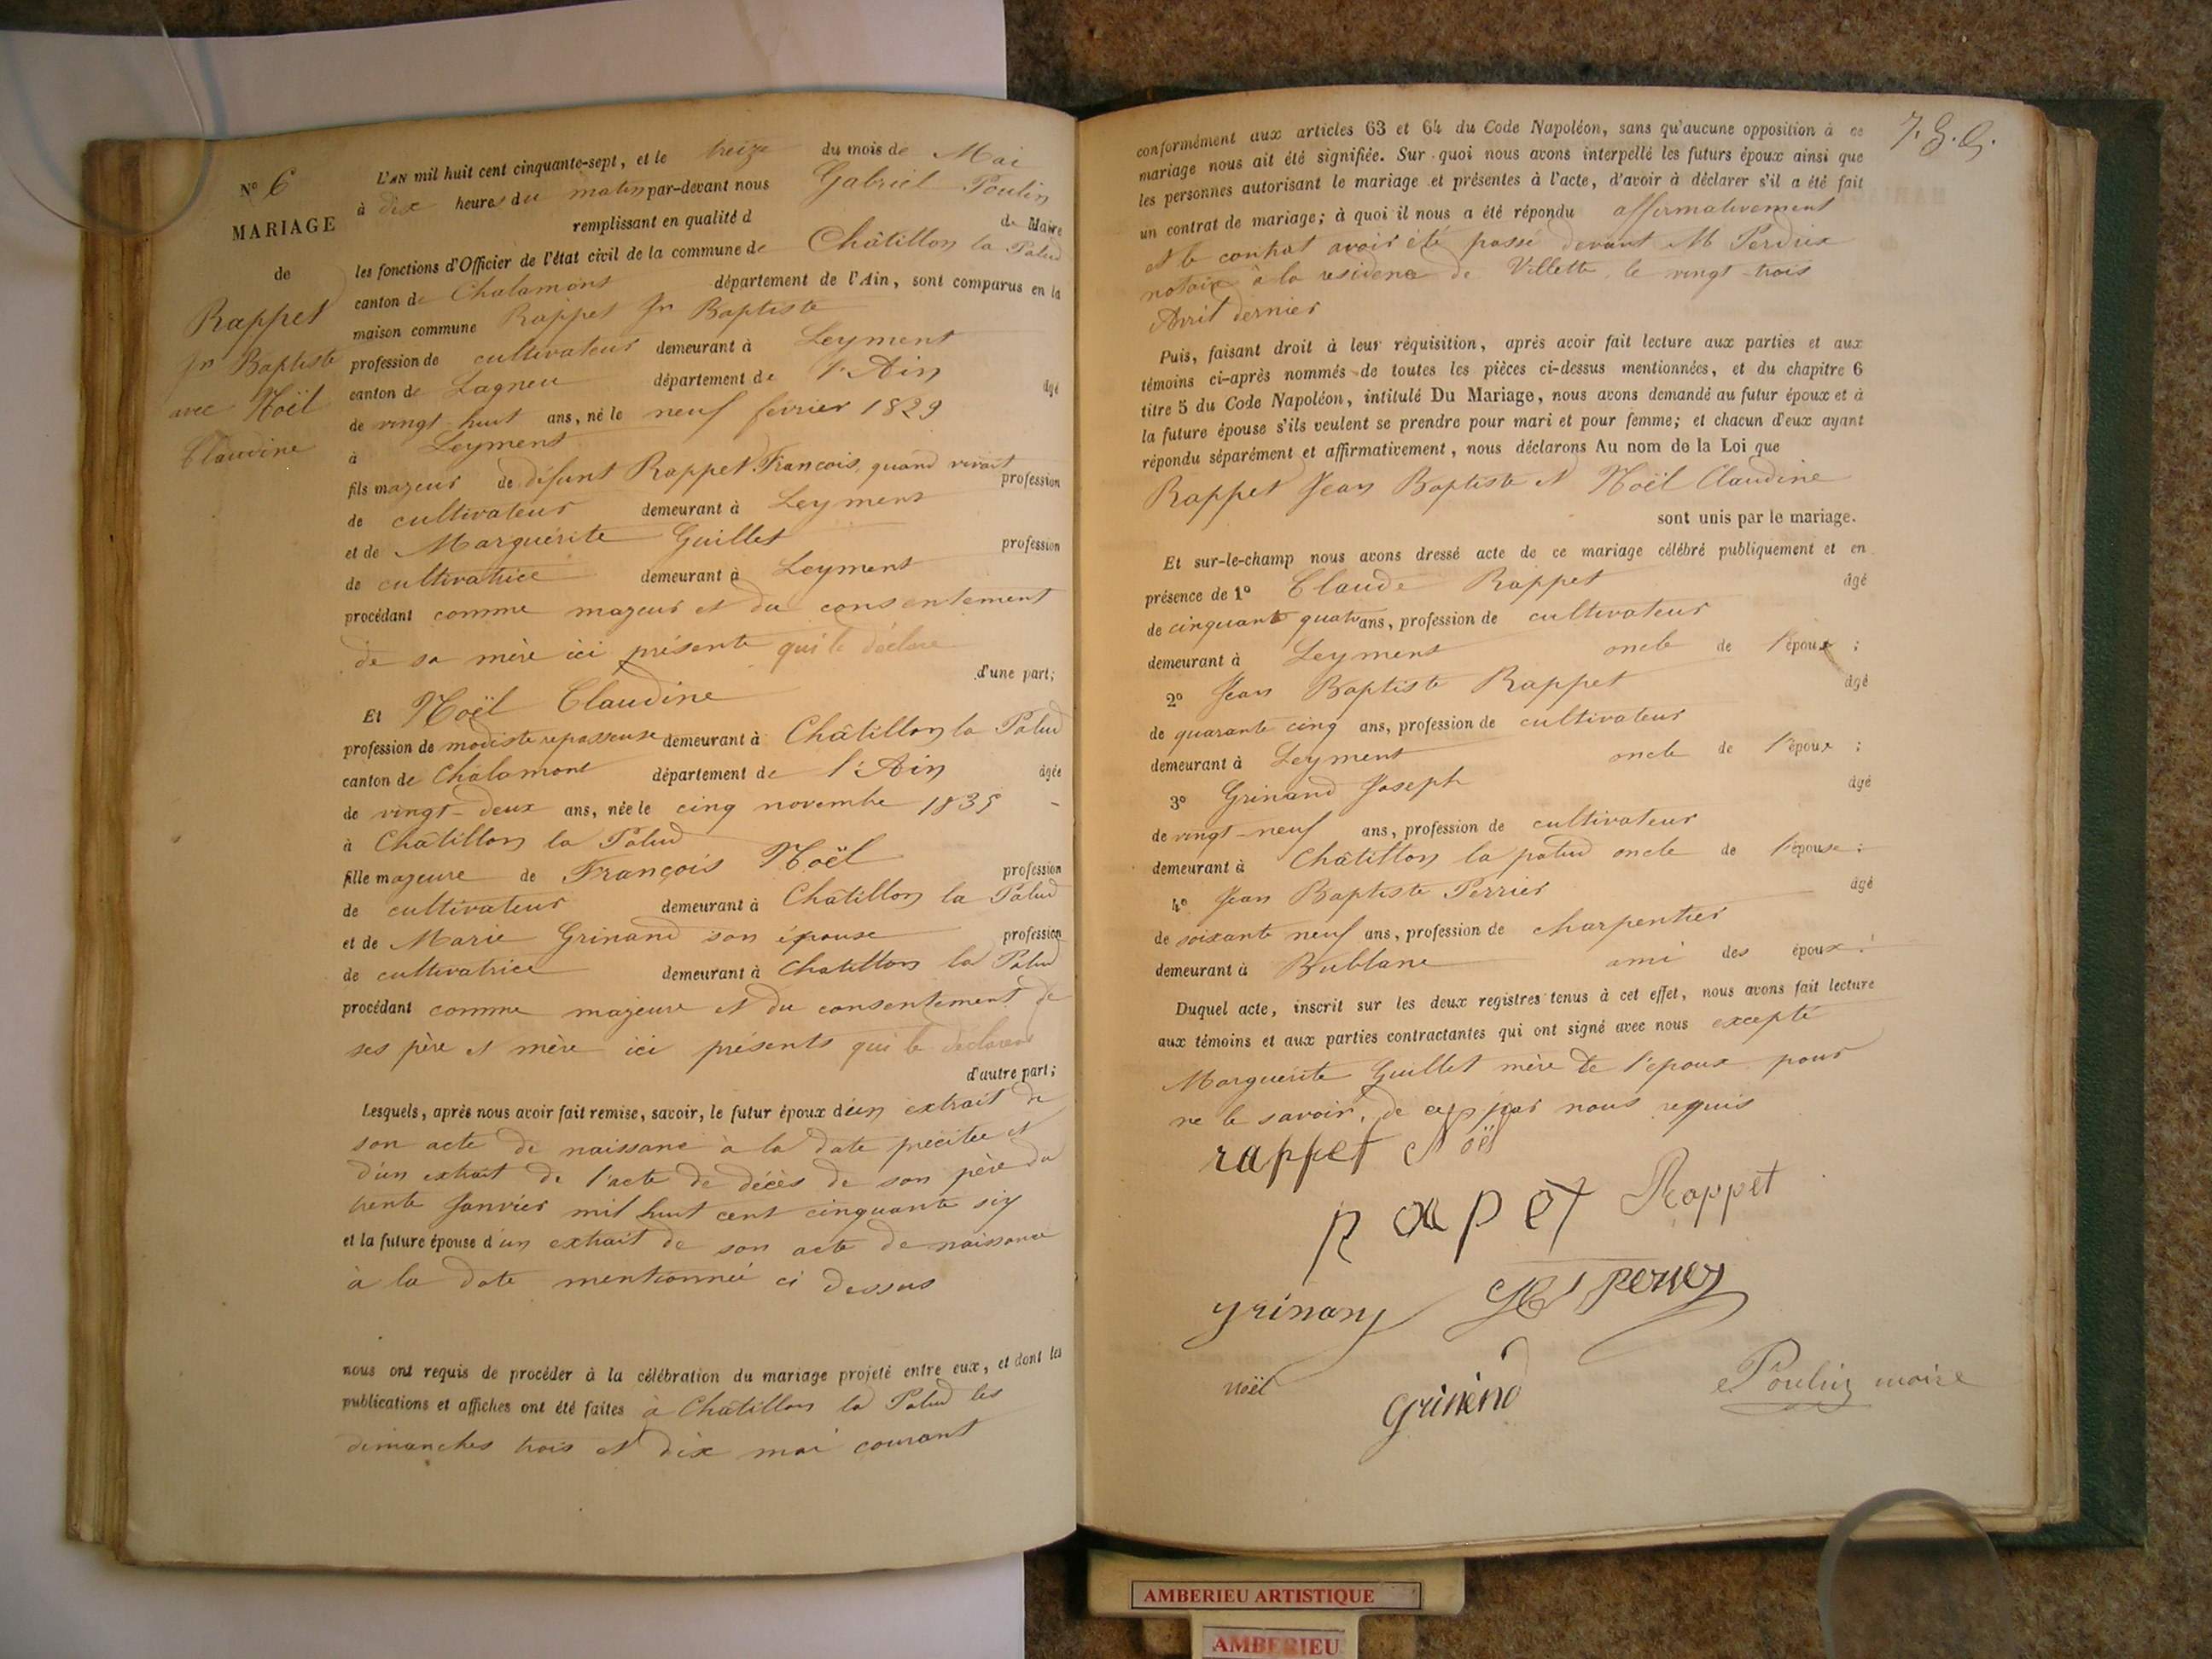 N° 6
MARIAGE
de
Rappet
Jn Baptiste
avec Noël
Claudine
L'AN mil huit cent cinquante-sept, et le treize du mois de Mai
à dix heures du matin par-devant nous Gabriel Poulin
remplissant en qualité d de Maire
les fonctions d'Officier de l'état civil de la commune de Châtillon la Palud
canton de Chalamont département de l'Ain, sont comparus en la
maison commune Rappet Jn Baptiste
profession de cultivateur demeurant à Leyment
canton de Lagneu département de l'Ain âgé
de vingt-huit ans, né le neuf février 1829
à Leyment
fils majeur de défunt Rappet François, quand vivait profession
de cultivateur demeurant à Leyment
et de Marguérite Guillet profession
de cultivatrice demeurant à Leyment
procédant comme majeur et du consentement
de sa mère ici présente qui le déclare
d'une part;
Et Noël Claudine
profession de modiste repasseuse demeurant à Châtillon la Palud
canton de Chalamont département de l'Ain âgée
de vingt-deux ans, née le cinq novembre 1835
à Châtillon la Palud
fille majeure de François Noël profession
de cultivateur demeurant à Châtillon la Palud
et de Marie Grinand son épouse profession
de cultivatrice demeurant à Chatillon la Palud
procédant comme majeure et du consentement de
ses père et mère ici présents qui le déclarent
d'autre part;
Lesquels, après nous avoir fait remise, savoir, le futur époux d'un extrait de
son acte de naissance à la date précitée et
d'un extrait de l'acte de décès de son père du
trente Janvier mil huit cent cinquante six
et la future épouse d'un extrait de son acte de naissance
à la date mentionnée ci dessus
nous ont requis de procéder à la célébration du mariage projeté entre eux, et dont les
publications et affiches ont été faites à Châtillon la Palud les
dimanches trois et dix mai courant
conformément aux articles 63 et 64 du Code Napoléon, sans qu'aucune opposition à ce
mariage nous ait été signifiée. Sur quoi nous avons interpellé les futurs époux ainsi que
les personnes autorisant le mariage et présentes à l'acte, d'avoir à déclarer s'il a été fait
un contrat de mariage; à quoi il nous a été répondu affirmativement
et le contrat avoir été passé devant Me Perdrix
notaire à la résidence de Villette, le vingt-trois
Avril dernier
Puis, faisant droit à leur réquisition, après avoir fait lecture aux parties et aux
témoins ci-après nommés de toutes les pièces ci-dessus mentionnées, et du chapitre 6
titre 5 du Code Napoléon, intitulé Du Mariage, nous avons demandé au futur époux et à
la future épouse s'ils veulent se prendre pour mari et pour femme; et chacun d'eux ayant
répondu séparément et affirmativement, nous déclarons Au nom de la Loi que
Rappet Jean Baptiste et Noël Claudine
sont unis par le mariage.
Et sur-le-champ nous avons dressé acte de ce mariage célébré publiquement et en
présence de 1° Claude Rappet âgé
de cinquante quatre ans, profession de cultivateur
demeurant à Leyment oncle de l'époux;
2° Jean Baptiste Rappet âgé
de quarante cinq ans, profession de cultivateur
demeurant à Leyment oncle de l'époux;
3° Grinand Joseph âgé
de vingt-neuf ans, profession de cultivateur
demeurant à Châtillon la palud oncle de l'épouse;
4° Jean Baptiste Perrier âgé
de soixante neuf ans, profession de charpentier
demeurant à Bublane ami des époux.
Duquel acte, inscrit sur les deux registres tenus à cet effet, nous avons fait lecture
aux témoins et aux parties contractantes qui ont signé avec nous excepté
Marguérite Guillet mère de l'époux pour
ne le savoir, de ce par nous requis
rappet Noël
rapet Rappet
grinand perrier
Noël grinend Poulin maire
AMBERIEU ARTISTIQUE
AMBERIEU